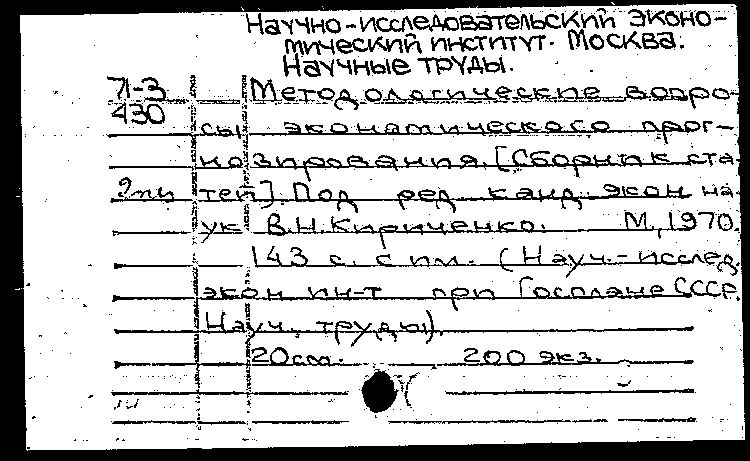 Научно-исследовательский эконо-
мический институт. Москва.
Научные труды.
71-3 Методологические вопро-
430 сы экономического прог-
нозирования. [Сборник ста-
тей]. Под ред. канд. экон. на-
ук В.Н. Кириченко. М., 1970.
143 с. с ил. (Науч.-исслед.
экон. ин-т при Госплане СССР.
Науч. труды).
20 см. 200 экз.